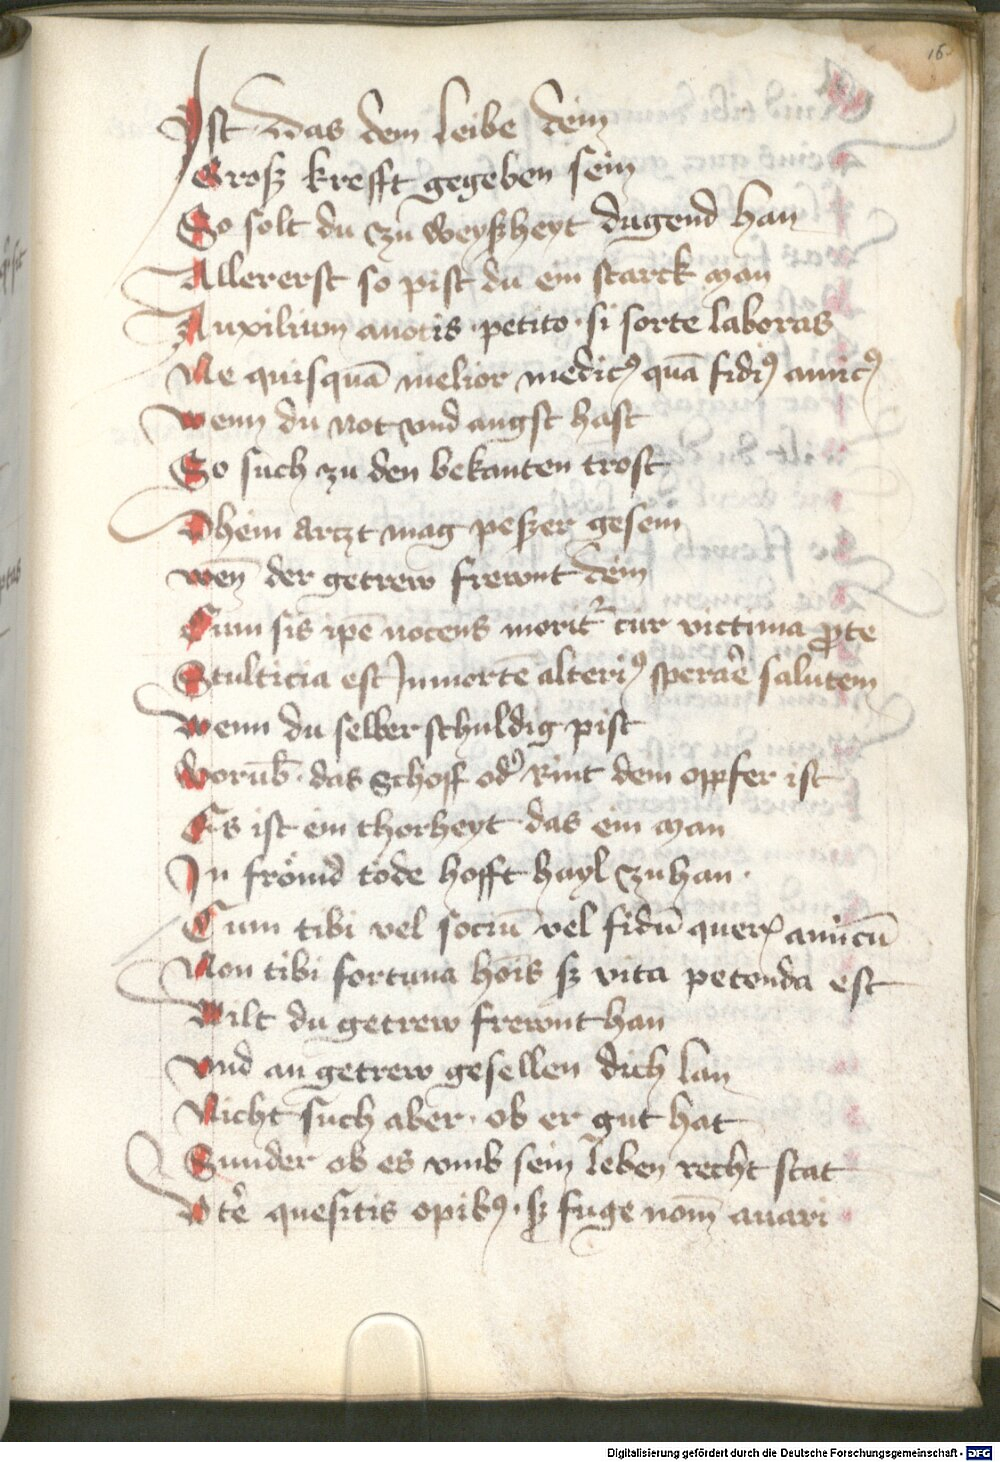 16.
Ist das dem leibe dein
Grosz krefft gegeben sein
So solt du zu weyszheyt dugend han
Allererst so pist du ein starck man
Auxilium anotis · petito · si forte laboras
Ne quisquā melior medicꝰ quā fidꝰ amicꝰ
Wenn du not vnd angst hast
So such zu den bekanten trost
Dhein artzt mag peszer gesein
wen̄ der getrew frewnt dein
Cum sis ip̄e nocens morit᷑ cur victima ꝓ te
Stulticia est In morte alteriꝰ sperar̄e salutem
Wenn du selber schuldig pist
Worūb · das schoff odꝰ rint dem opfer ist
Es ist ein thorheyt das ein man
In frömd tode hofft hayl zu han ·
Cum tibi vel sociū vel fidū querꝭ amicū
Non tibi fortuna hoīs sꝫ vita petenda est
Wilt du getrew frewnt han
Vnd an getrew gesellen dich lan
Nicht such aber · ob er gut hat
Sunder ob es vmb sein leben recht stat
Vtē quesitis opibꝰ · sꝫ fuge nom̄ auari
Digitalisierung gefördert durch die Deutsche Forschungsgemeinschaft - DFG